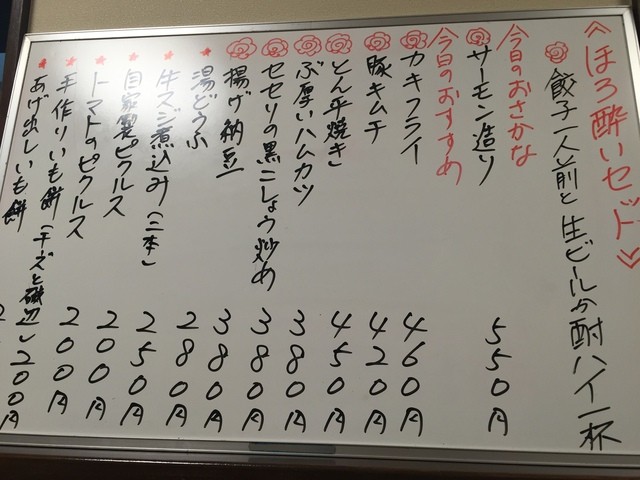 ≪ほろ酔いセット♡
餃子一人前と生ビールか酎ハイ一杯
今日のおさかな
サーモン造り 550円
今日のおすすめ
カキフライ 460円
豚キムチ 420円
とん平焼き 450円
ぶ厚いハムカツ 380円
セセリの黒こしょう炒め 380円
揚げ納豆 380円
湯どうふ 280円
牛スジ煮込み(三本) 250円
自家製ピクルス 200円
トマトのピクルス 200円
手作りいも餅(チーズと磯辺) 200円
あげ出しいも餅 2